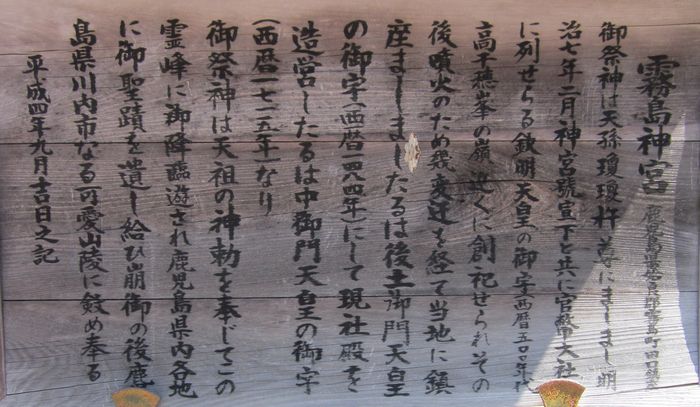 霧島神宮 鹿児島県姶良郡霧島町田口鎮座
御祭神は天孫瓊瓊杵尊にましまし明
治七年二月神宮號宣下と共に官幣大社
に列せらる欽明天皇の御宇(西暦五〇〇年代
高千穂峯の嶺近くに創祀せられその
後噴火のため幾変迁を経て当地に鎮
座ましましたるは後土御門天皇
の御宇(西暦一四八四年)にして現社殿を
造営したるは中御門天皇の御宇
(西暦一七一五年)なり
御祭神は天祖の神勅を奉じてこの
霊峰に御降臨遊され鹿児島県内各地
に御聖蹟を遺し給ひ崩御の後鹿
島県川内市なる可愛山陵に斂め奉る
平成四年九月吉日之記